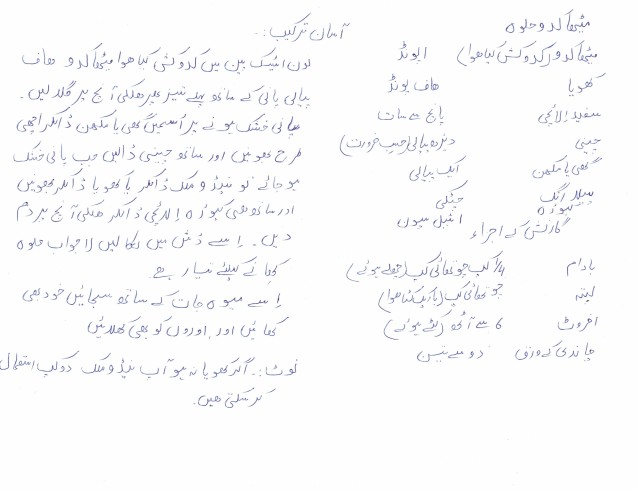 میٹھا کدو حلوہ
میٹھا کدو (کدوکش کیا ہوا) ۱ پونڈ
کھویا ہاف پونڈ
سفید الائچی پانچ سے سات
چینی ڈیڑھ پیالی (حسب ضرورت)
گھی یا مکھن ایک پیالی
پیلا رنگ چٹکی
کیوڑہ ۱ ٹیبل سپون
گارنش کے اجزاء
بادام 1/4 کپ چوتھائی کپ (چھلے ہوئے)
پستہ چوتھائی کپ (باریک کٹا ہوا)
اخروٹ 6 سے آٹھ (کٹے ہوئے)
چاندی کے ورق دو سے تین
آسان ترکیب:۔
نون اسٹیک پین میں کدوکش کیا ہوا میٹھا کدو ہاف
پیالی پانی کے ساتھ پہلے تیز پھر ہلکی آنچ پر گلالیں۔
پانی خشک ہونے پر اسمیں گھی یا مکھن ڈالکر اچھی
طرح بھونیں اور ساتھ چینی ڈالیں جب پانی خشک
ہو جائے تو نیڈو ملک ڈالکر یا کھویا ڈالکر بھونیں
اور ساتھ ہی کیوڑہ الائچی ڈالکر ہلکی آنچ پر دم
دیں۔ اسے ڈش میں نکالیں لاجواب حلوہ
کھانے کیلئے تیار ہے
اسے میوہ جات کے ساتھ سجائیں خود بھی
کھائیں اور اوروں کو بھی کھلائیں
نوٹ:۔ اگر کھویا نہ ہو آپ نیڈو ملک دو کپ استعمال
کر سکتی ھیں۔